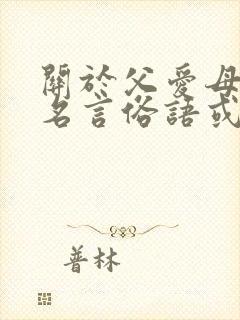 關於父愛母
名言俗語或
普林